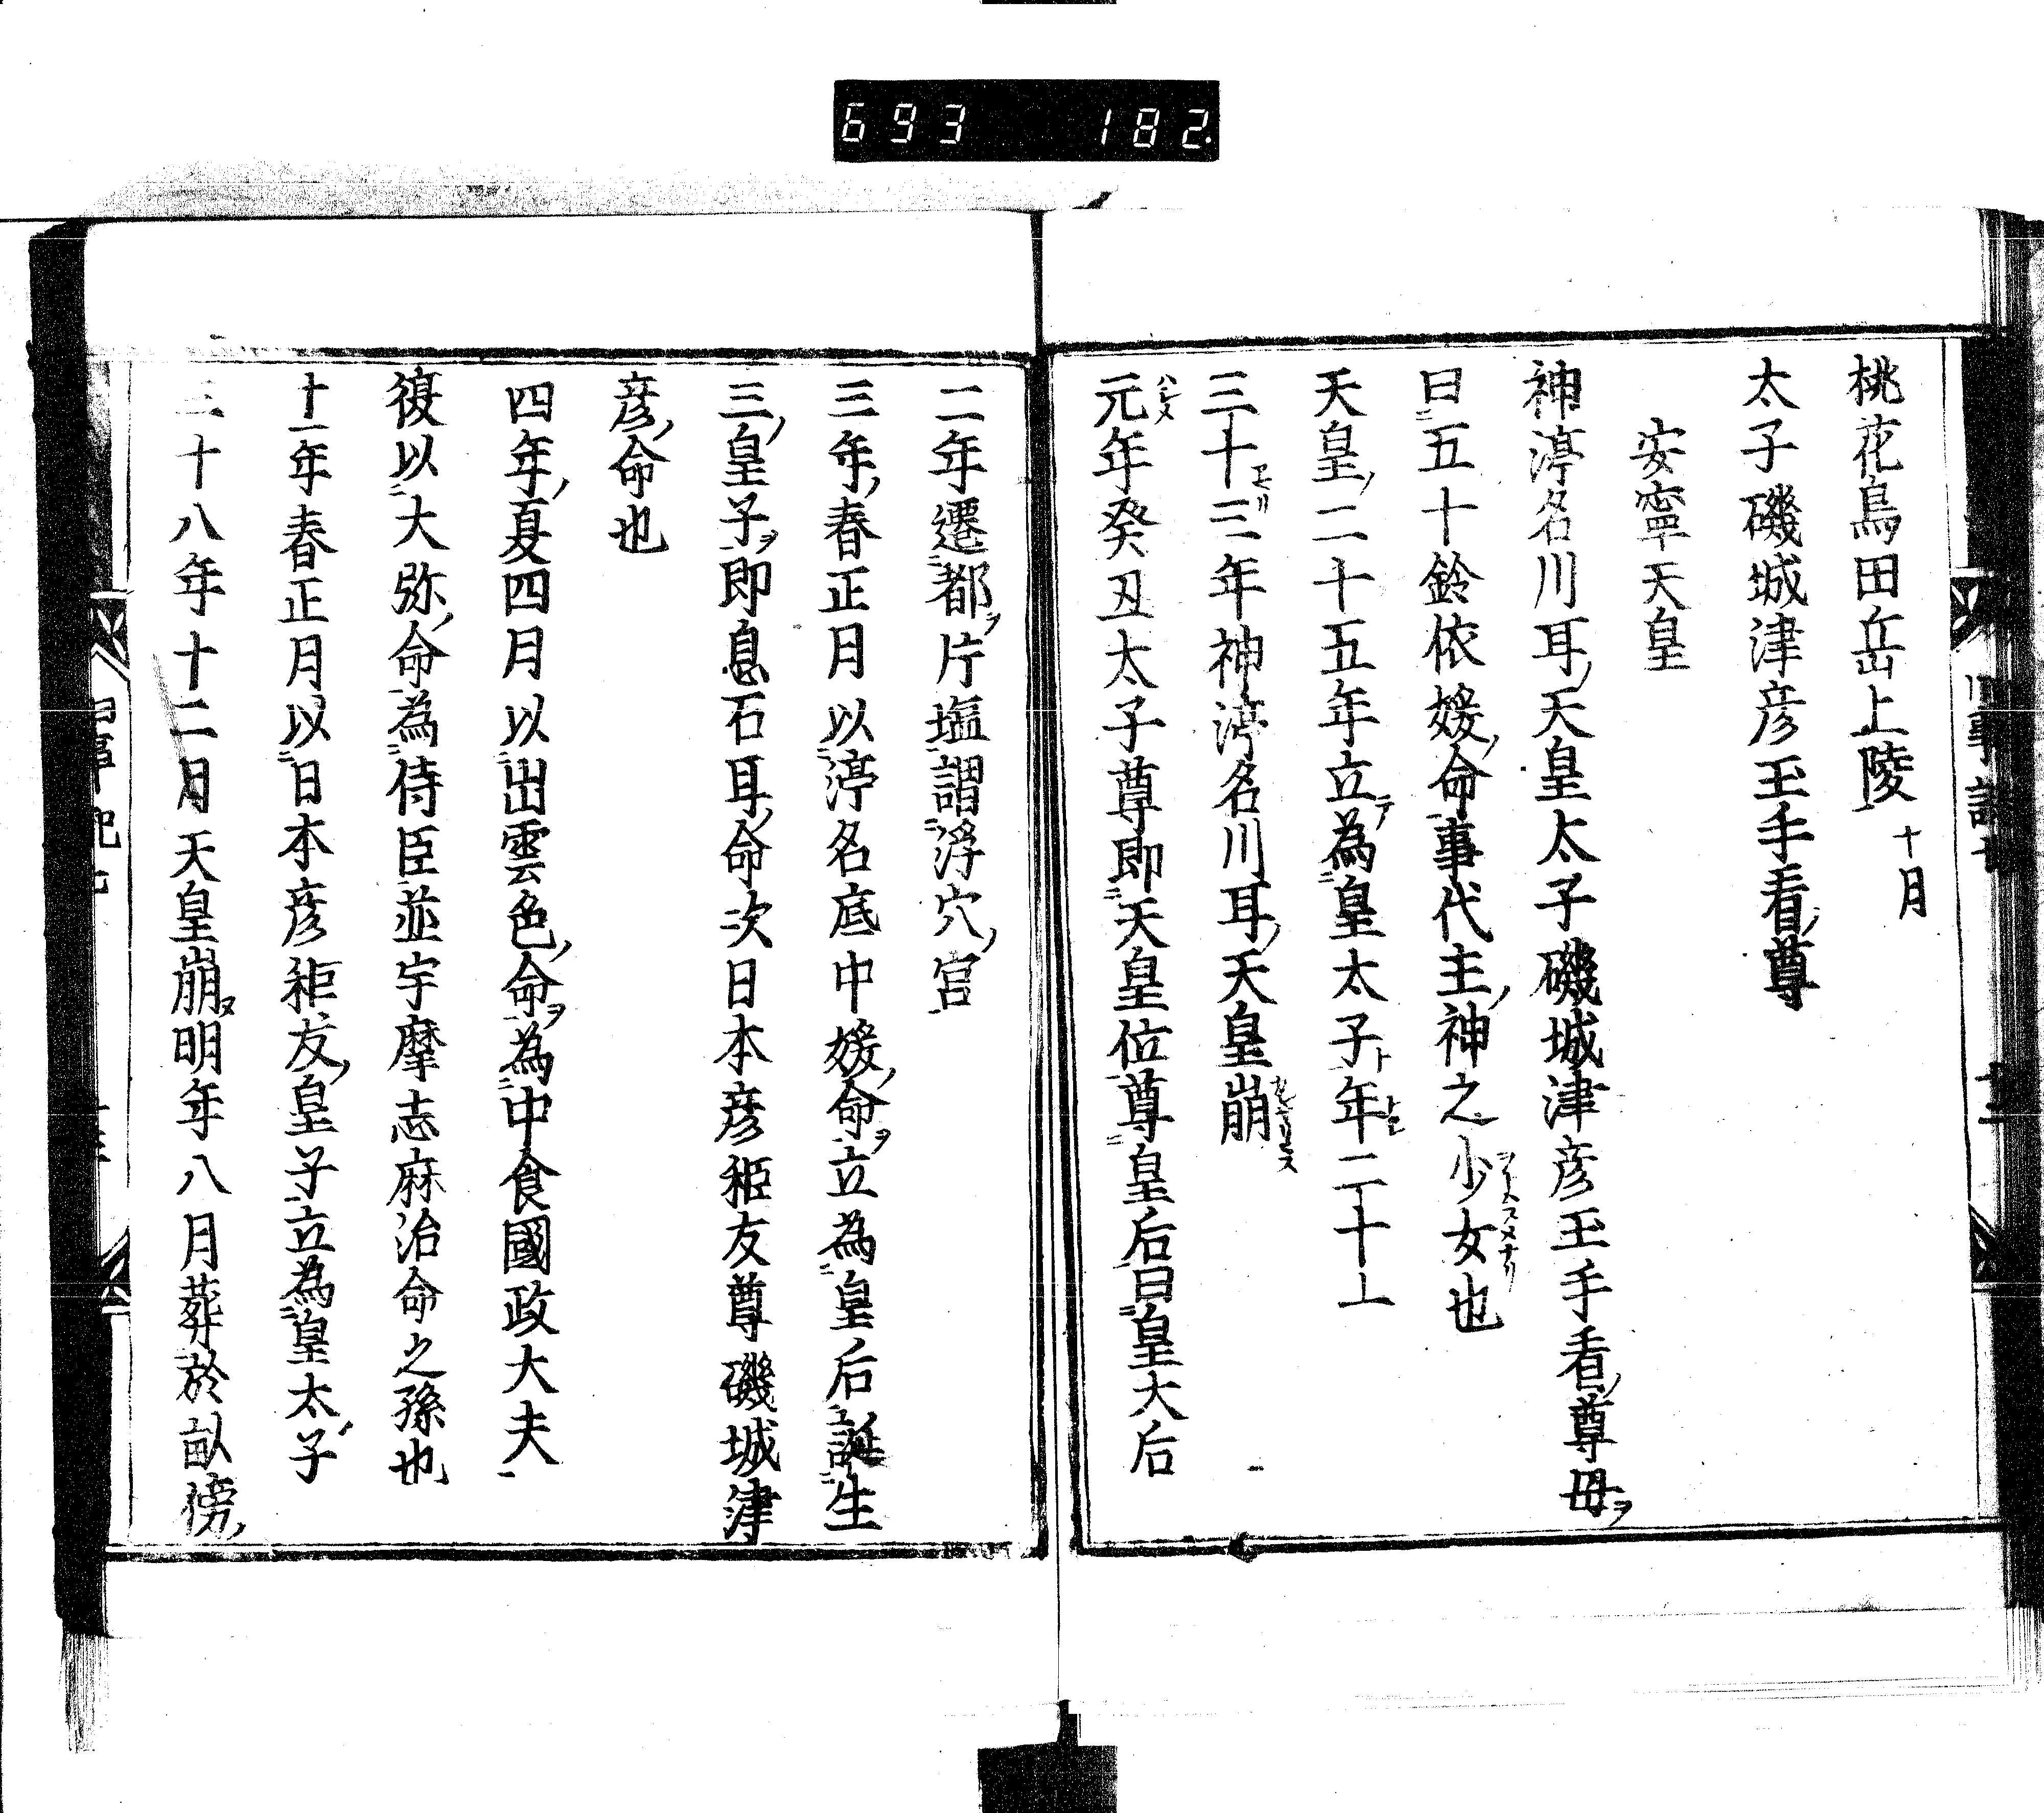 693 182
桃花鳥田岳上陵 十月
太子磯城津彦玉手看ノ尊
安寧天皇
神渟名川耳ノ天皇太子磯城津彦玉手看ノ尊母ヲ
曰ニ五十鈴依媛ノ命ト事代主ノ神之少女也
天皇ノ二十五年立テ為ニ皇太子ト年二十一
三十三年神渟名川耳ノ天皇崩
元年癸丑太子尊即ニ天皇位尊ニ皇后曰ニ皇大后
二年遷ニ都ヲ片塩謂ニ浮穴ノ宮
三年ノ春正月以ニ渟名底中媛ノ命ヲ立為ニ皇后誕ニ生
三ノ皇子ヲ即息石耳ノ命次日本彦耟友尊磯城津
彦ノ命也
四年ノ夏四月以ニ出雲色ノ命ヲ為ニ中食國政大夫
復以ニ大弥ノ命為ニ侍臣並宇摩志麻治命之孫也
十一年春正月以ニ日本彦耟友ノ皇子立為ニ皇太子
三十八年十二月天皇崩ヌ明年八月葬於畝傍ノ